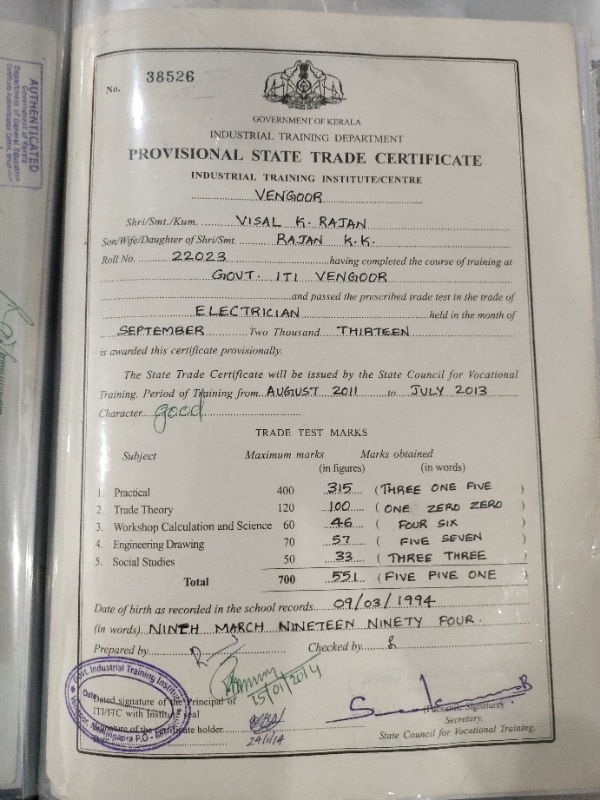 AUTHENTICATED
Government of Kerala
Department of General Education
No. 38526
GOVERNMENT OF KERALA
INDUSTRIAL TRAINING DEPARTMENT
PROVISIONAL STATE TRADE CERTIFICATE
INDUSTRIAL TRAINING INSTITUTE/CENTRE
VENGOOR
Shri/Smt./Kum. VISAL K. RAJAN
Son/Wife/Daughter of Shri/Smt. RAJAN K.K.
Roll No. 22023 having completed the course of training at
GOVT. ITI VENGOOR
and passed the prescribed trade test in the trade of
ELECTRICIAN held in the month of
SEPTEMBER Two Thousand THIRTEEN
is awarded this certificate provisionally.
The State Trade Certificate will be issued by the State Council for Vocational
Training. Period of Training from AUGUST 2011 to JULY 2013
Character good
TRADE TEST MARKS
Subject Maximum marks Marks obtained
(in figures) (in words)
1. Practical 400 315 (THREE ONE FIVE)
2. Trade Theory 120 100 (ONE ZERO ZERO)
3. Workshop Calculation and Science 60 46 (FOUR SIX)
4. Engineering Drawing 70 57 (FIVE SEVEN)
5. Social Studies 50 33 (THREE THREE)
Total 700 551 (FIVE FIVE ONE)
Date of birth as recorded in the school records 09/03/1994
(in words) NINTH MARCH NINETEEN NINETY FOUR.
Prepared by Checked by
15/01/2014
Govt. Industrial Training Institute
Dated signature of the Principal of
ITI/ITC with Institute seal
(Facsimile Signature)
Secretary,
State Council for Vocational Training.
Signature of the certificate holder
24/1/14